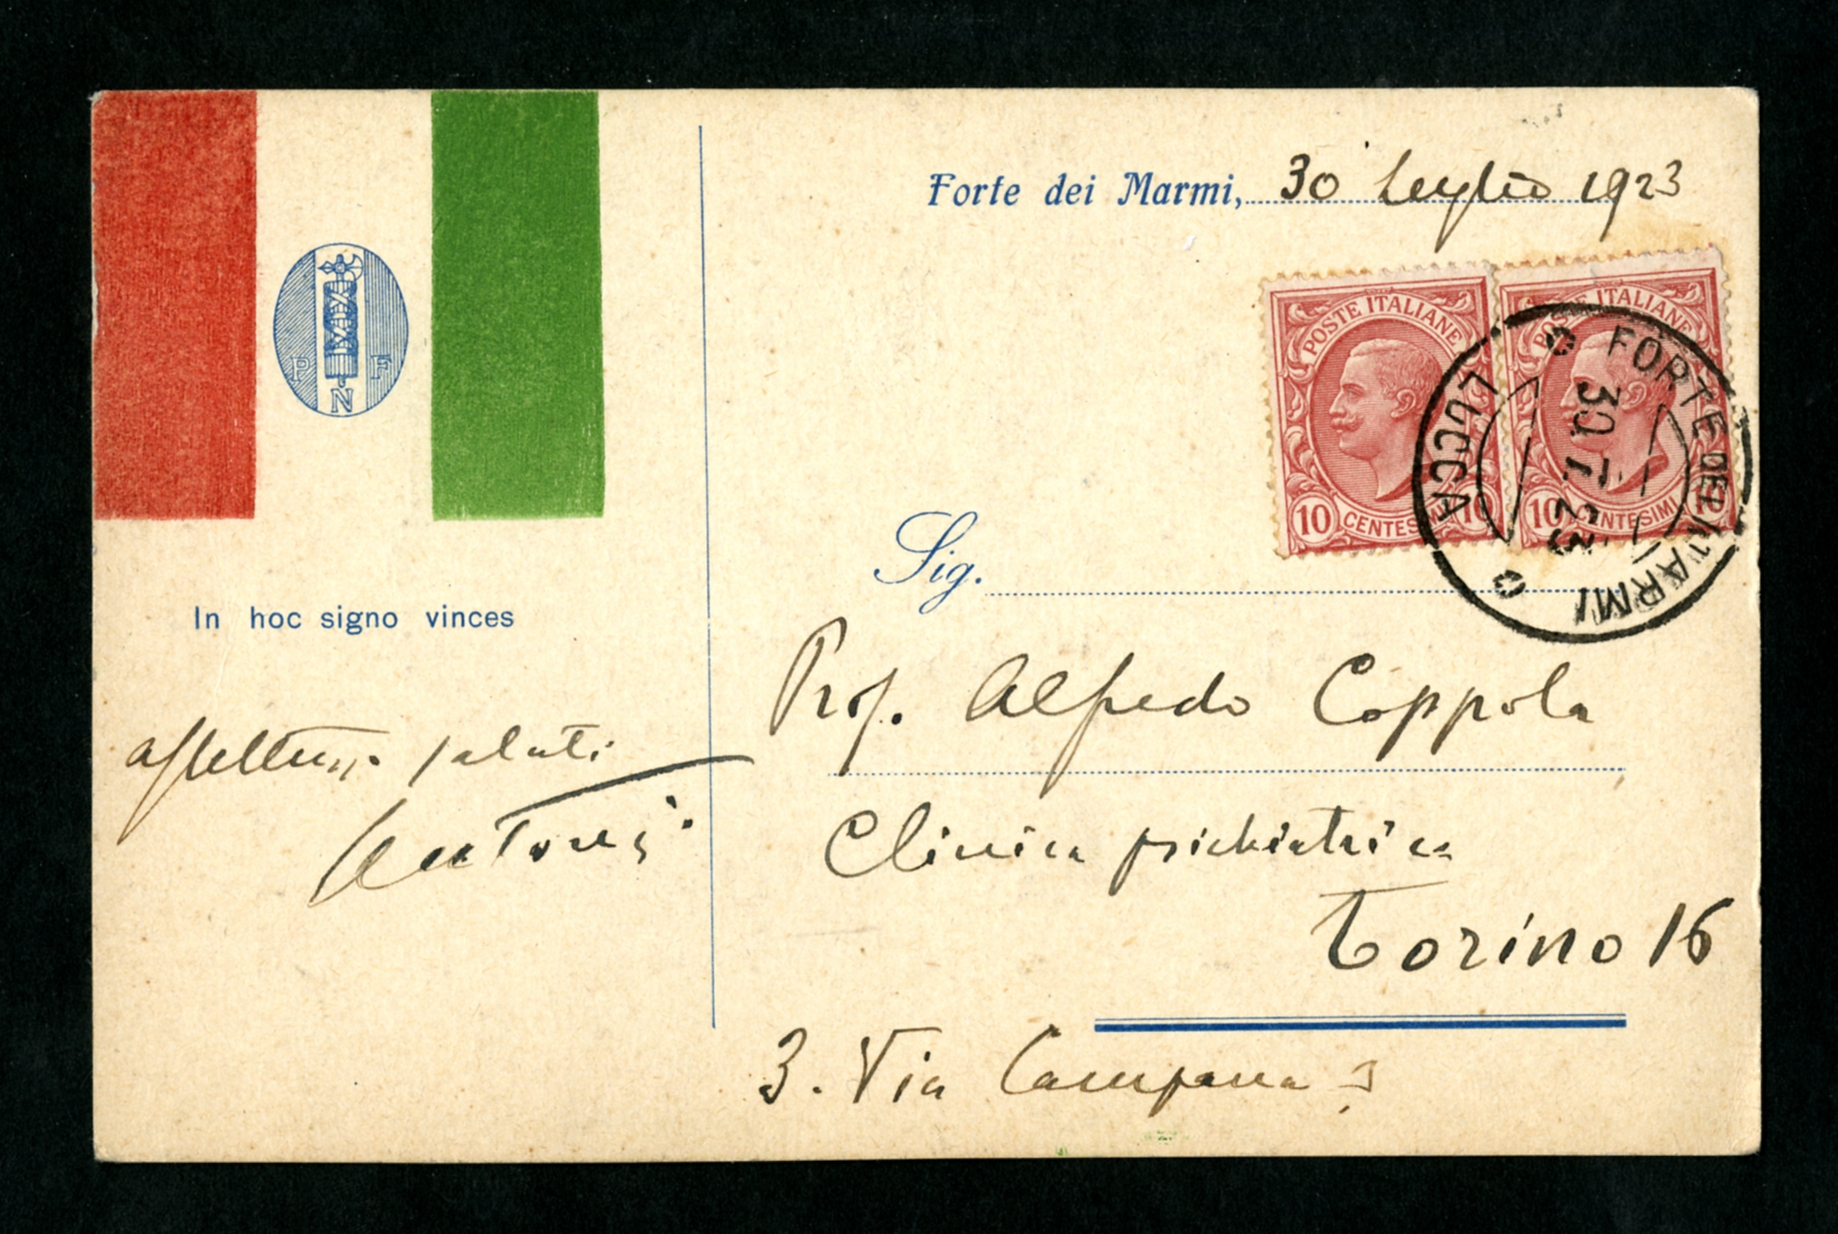 Forte dei Marmi, 30 Luglio 1923
P N F
In hoc signo vinces
POSTE ITALIANE
10 CENTES 10
POSTE ITALIANE
10 CENTESIMI
FORTE DEI MARMI
LUCCA
30.7.23
Sig.
Prof. Alfredo Coppola
Clinica psichiatrica
Torino 16
3. Via Campana 3
affettuosi saluti